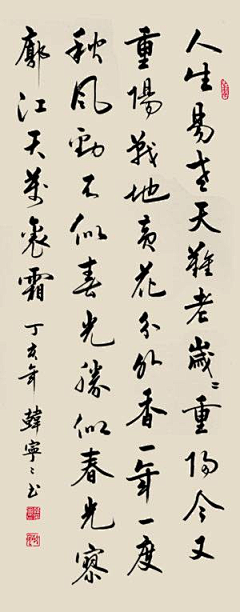 人生易老天難老歲〻重陽今又
重陽戰地黃花分外香一年一度
秋風勁不似春光勝似春光寥
廓江天萬裏霜 丁亥年韓寧〻书